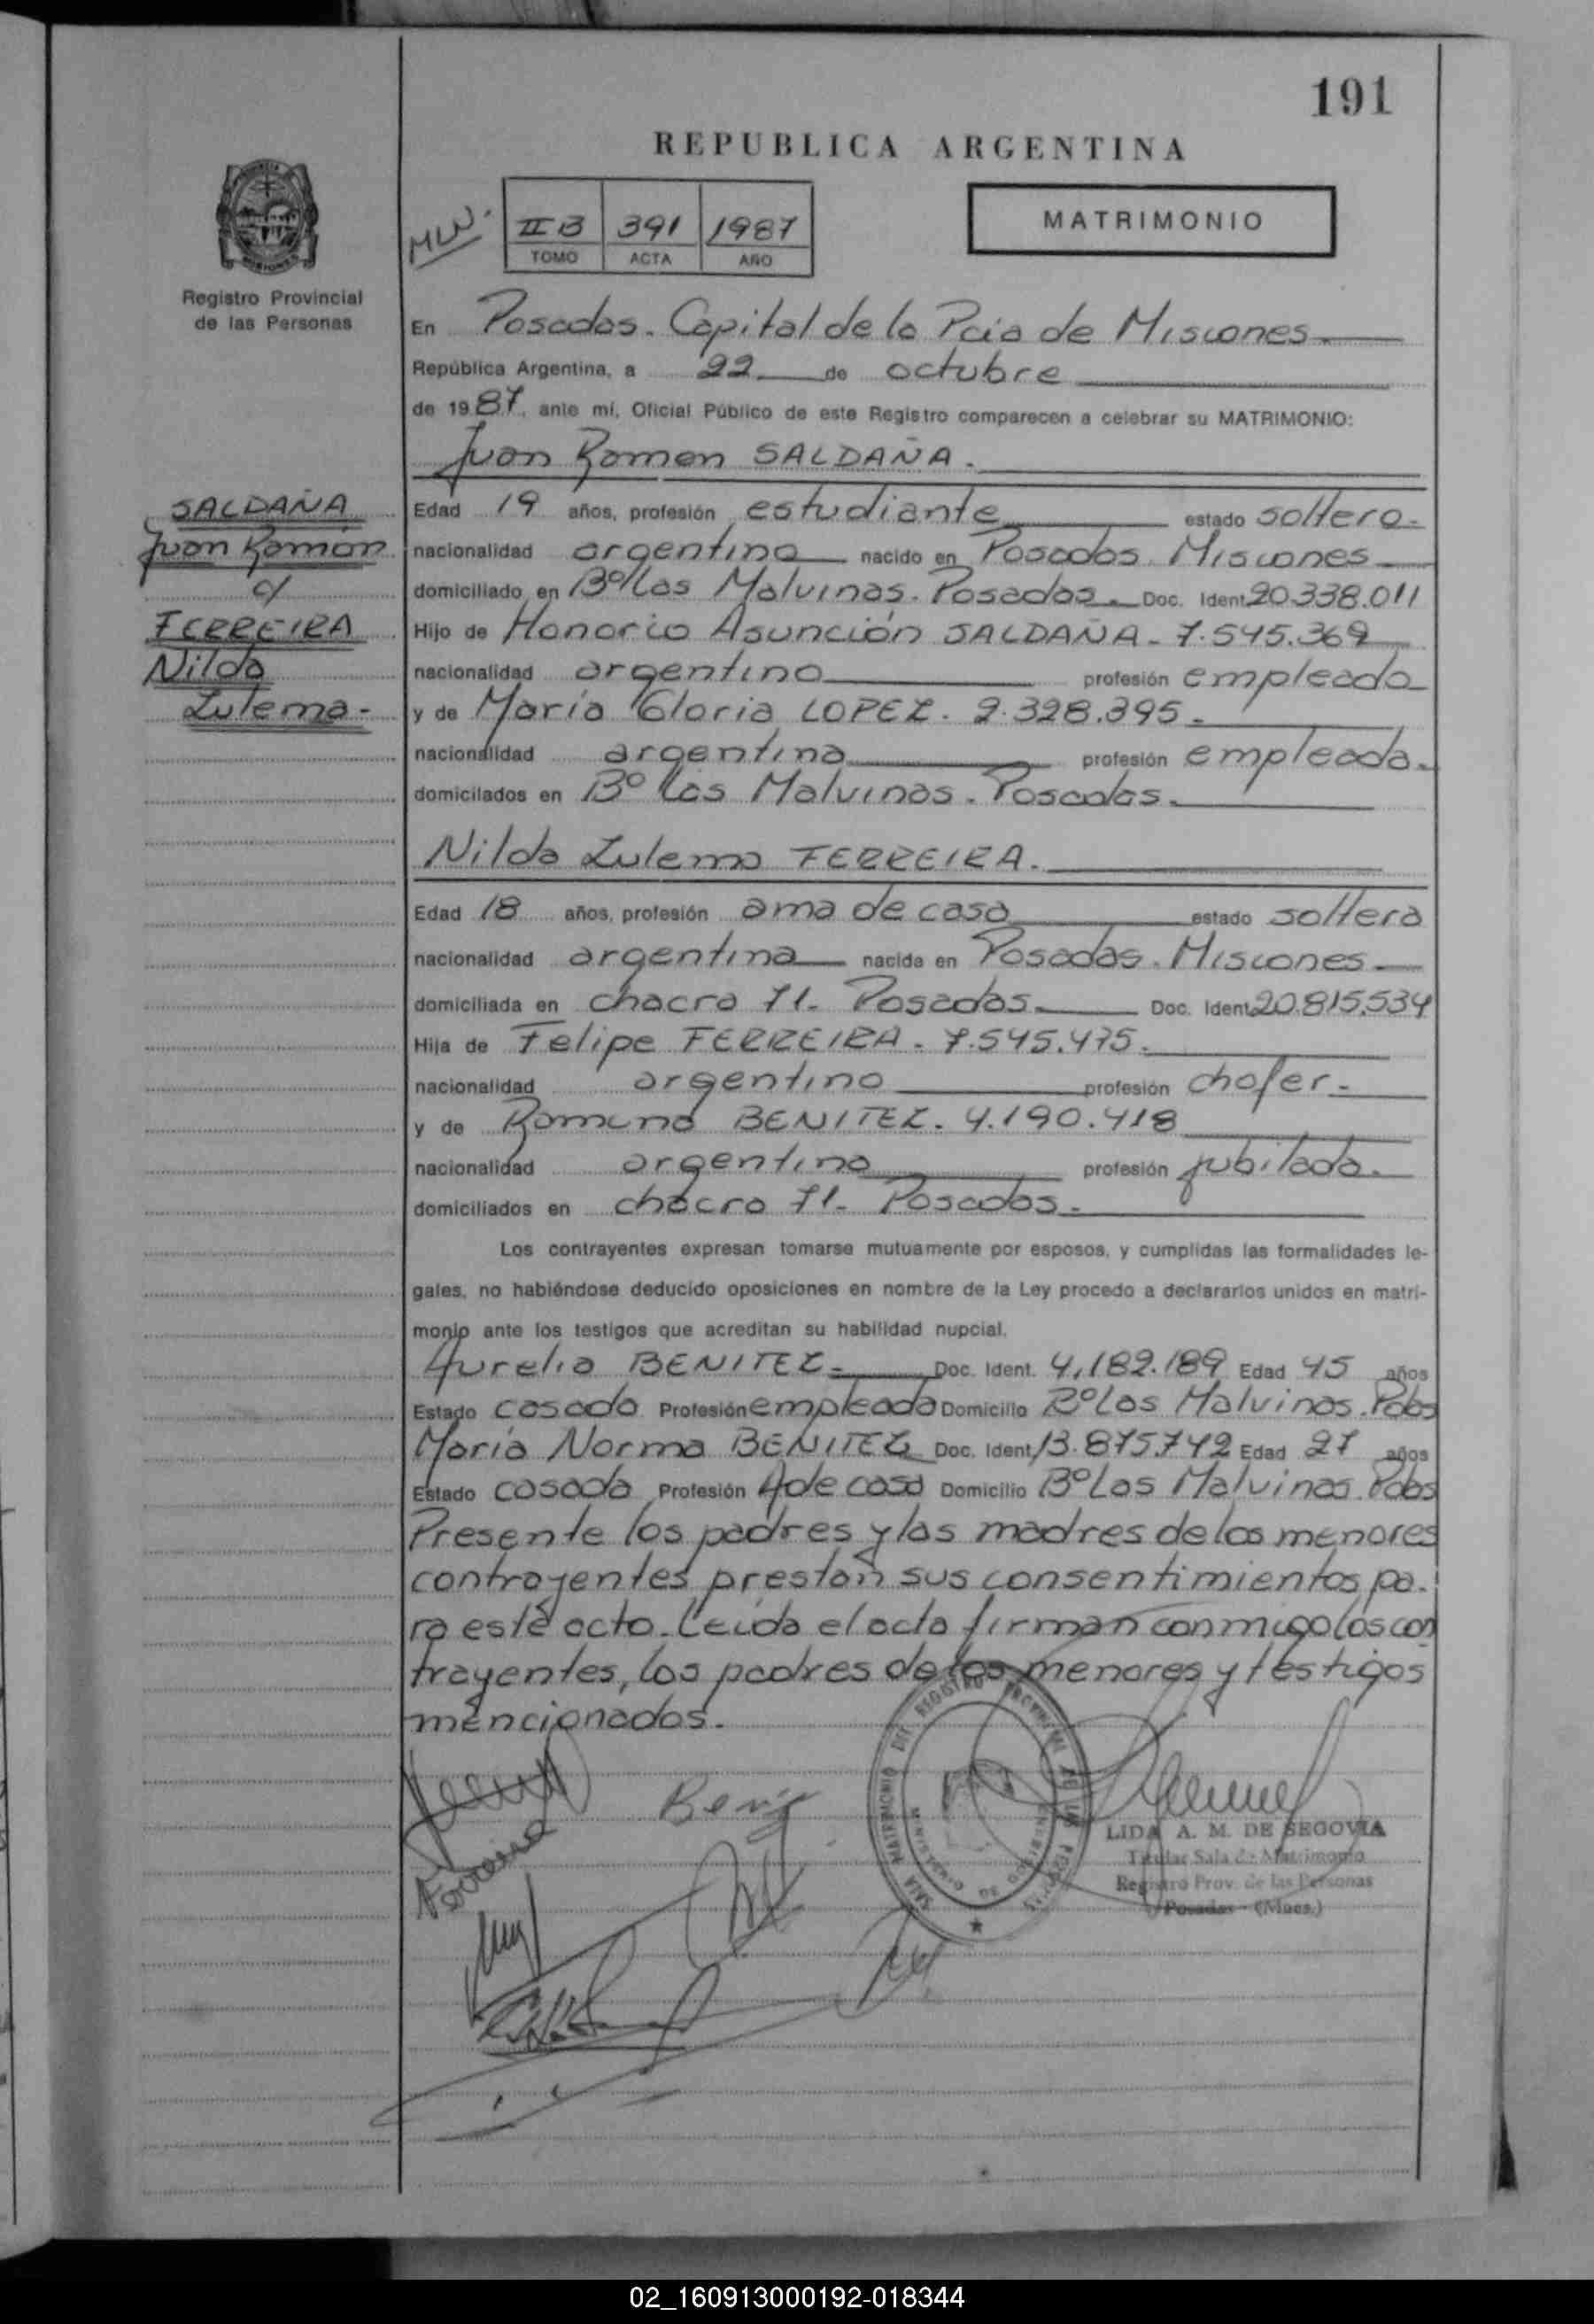 191
REPUBLICA ARGENTINA
MLW.
II B 391 1987
TOMO ACTA AÑO
MATRIMONIO
Registro Provincial
de las Personas
En Posadas. Capital de la Pcia de Misiones.
República Argentina, a 22 de octubre
de 1987, ante mí, Oficial Público de este Registro comparecen a celebrar su MATRIMONIO:
Juan Ramon SALDAÑA.
SALDAÑA
Juan Ramón
c/
FERREIRA
Nilda
Zulema.-
Edad 19 años, profesión estudiante estado soltero.
nacionalidad argentino nacido en Posadas. Misiones
domiciliado en Bº Las Malvinas. Posadas. Doc. Ident. 20.338.011
Hijo de Honorio Asunción SALDAÑA - 7.545.369
nacionalidad argentino profesión empleado
y de María Gloria LOPEZ. 2.328.395.
nacionalidad argentina profesión empleada.
domicilados en Bº Las Malvinas. Posadas.
Nilda Zulema FERREIRA.
Edad 18 años, profesión ama de casa estado soltera
nacionalidad argentina nacida en Posadas. Misiones.
domiciliada en chacra 71. Posadas. Doc. Ident. 20.815.534
Hija de Felipe FERREIRA. 7.545.475.
nacionalidad argentino profesión chofer.
y de Romina BENITEZ. 4.190.418
nacionalidad argentina profesión jubilada.
domiciliados en chacra 71. Posadas.
Los contrayentes expresan tomarse mutuamente por esposos, y cumplidas las formalidades le-
gales, no habiéndose deducido oposiciones en nombre de la Ley procedo a declararlos unidos en matri-
monio ante los testigos que acreditan su habilidad nupcial.
Aurelia BENITEZ. Doc. Ident. 4.182.189 Edad 45 años
Estado casada Profesión empleada Domicilio Bº Las Malvinas. Pdas
María Norma BENITEZ Doc. Ident. 13.875.742 Edad 27 años
Estado casada Profesión A de casa Domicilio Bº Las Malvinas. Pdas
Presente los padres y las madres de los menores
contrayentes prestan sus consentimientos pa-
ra este acto. Leída el acta firman conmigo los con
trayentes, los padres de los menores y testigos
mencionados.
Ferreira
LIDA A. M. DE SEGOVIA
Titular Sala de Matrimonio
Registro Prov. de las Personas
Posadas - (Mnes.)
SALA MATRIMONIO DEL REGISTRO PROVINCIAL DE LAS PERSONAS
02_160913000192-018344